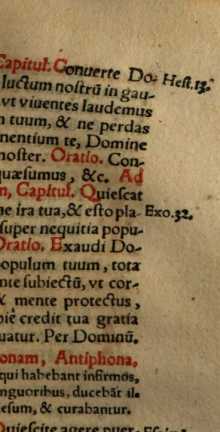 Capitul. Conuerte Do- Hest.13.
luctum nostrū in gau-
vt viuentes laudemus
n tuum, & ne perdas
nentium te, Domine
noster. Oratio. Con-
quæsumus, &c. Ad
n, Capitul. Quiescat
ne ira tua, & esto pla- Exo.32.
super nequitia popu-
Oratio. Exaudi Do-
populum tuum, tota
nte subiectū, vt cor-
& mente protectus,
piè credit tua gratia
uatur. Per Dominū.
onam, Antiphona,
qui habebant infirmos,
nguoribus, ducebāt il-
esum, & curabantur.
Quiescite agere puer- Es